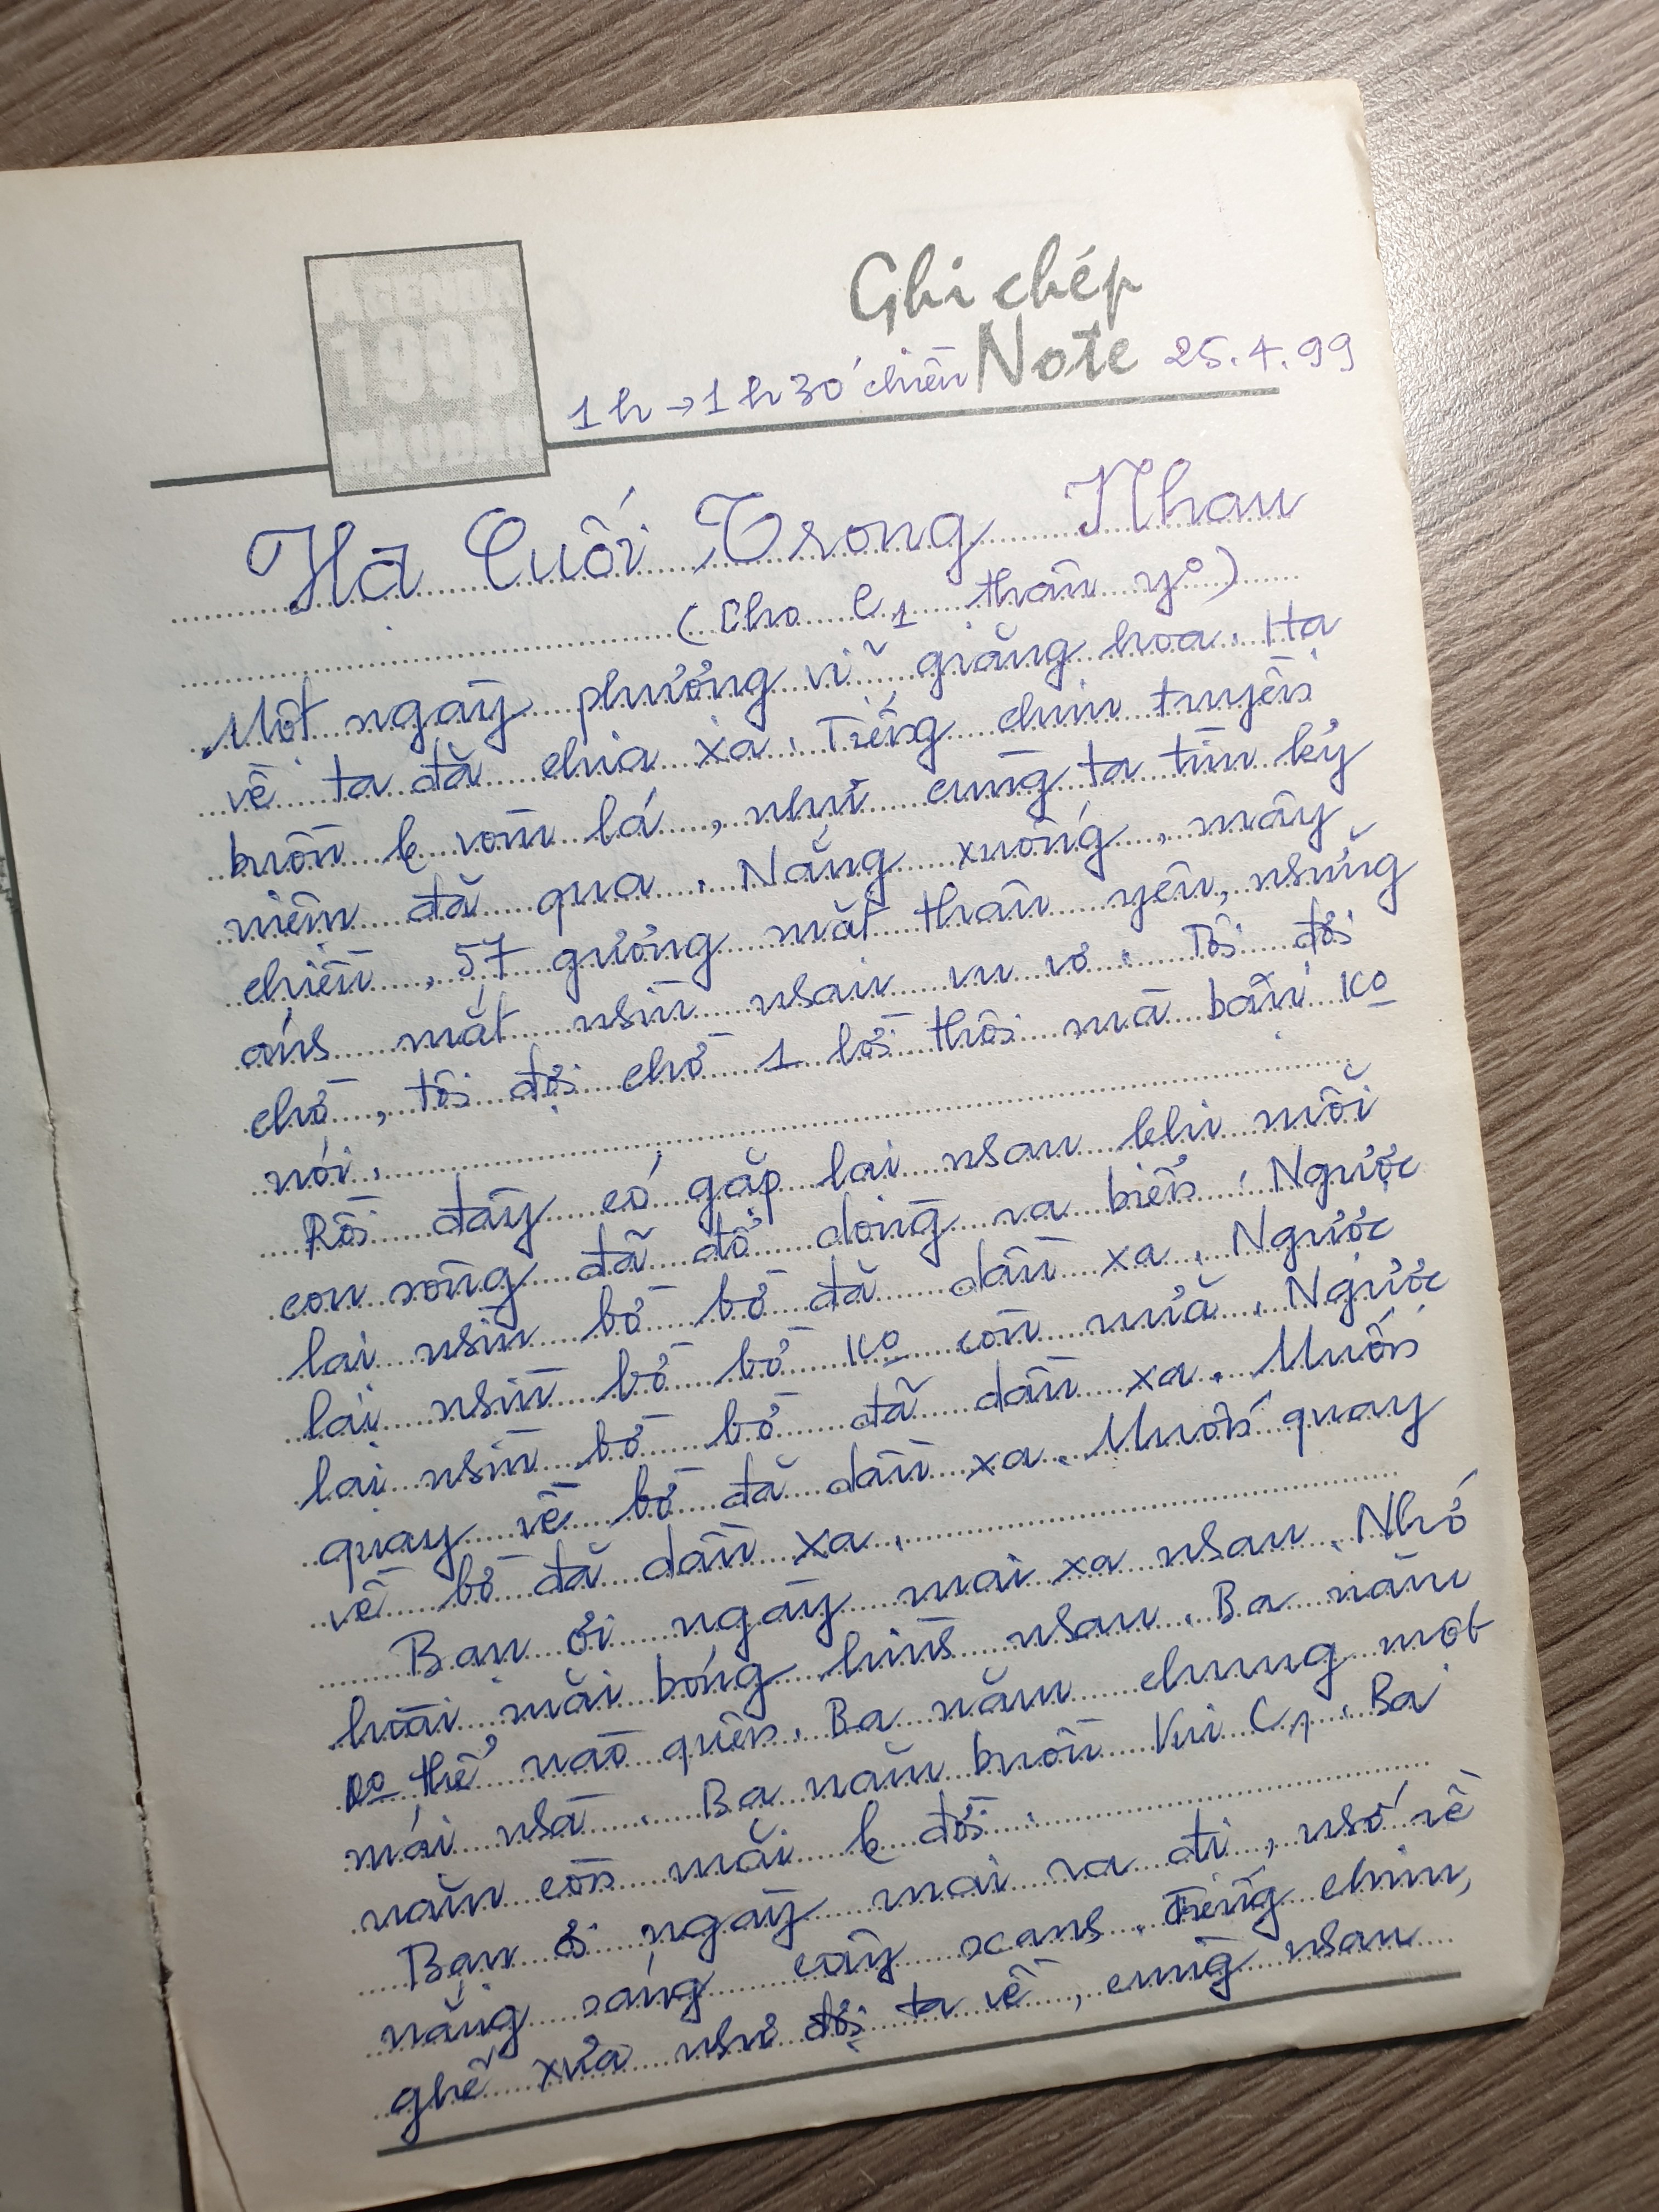 AGENDA
1998
MẬU DẦN
Ghi chép
Note
1h → 1h30' chiều
25.4.99
Hạ Cuối Trong Nhau
(Cho C1 thân yo)
Một ngày phượng vĩ giăng hoa. Hạ
về ta đã chia xa. Tiếng chim truyền
buồn vòm lá, như cùng ta tìm kỷ
niệm đã qua. Nắng xuống, mây
chiều, 57 gương mặt thân yêu, những
ánh mắt nhìn nhau vu vơ. Tôi đợi
chờ, tôi đợi chờ 1 lời thôi mà bạn Ko
nói.
Rồi đây có gặp lại nhau khi mỗi
con sông đã đổ dòng ra biển. Ngược
lại nhìn bờ bờ đã dần xa. Ngược
lại nhìn bờ bờ Ko còn nữa. Ngược
lại nhìn bờ bờ đã dần xa. Muốn
quay về bờ đã dần xa. Muốn quay
về bờ đã dần xa.
Bạn ơi ngày mai xa nhau. Nhớ
hoài mãi bóng hình nhau. Ba năm
Ko thể nào quên. Ba năm chung một
mái nhà. Ba năm buồn Vui C1. Ba
năm còn mãi đời.
Bạn ơi ngày mai ra đi, nhớ về
nắng sáng cây xanh. Tiếng chim,
ghế xưa như đợi ta về, cùng nhau